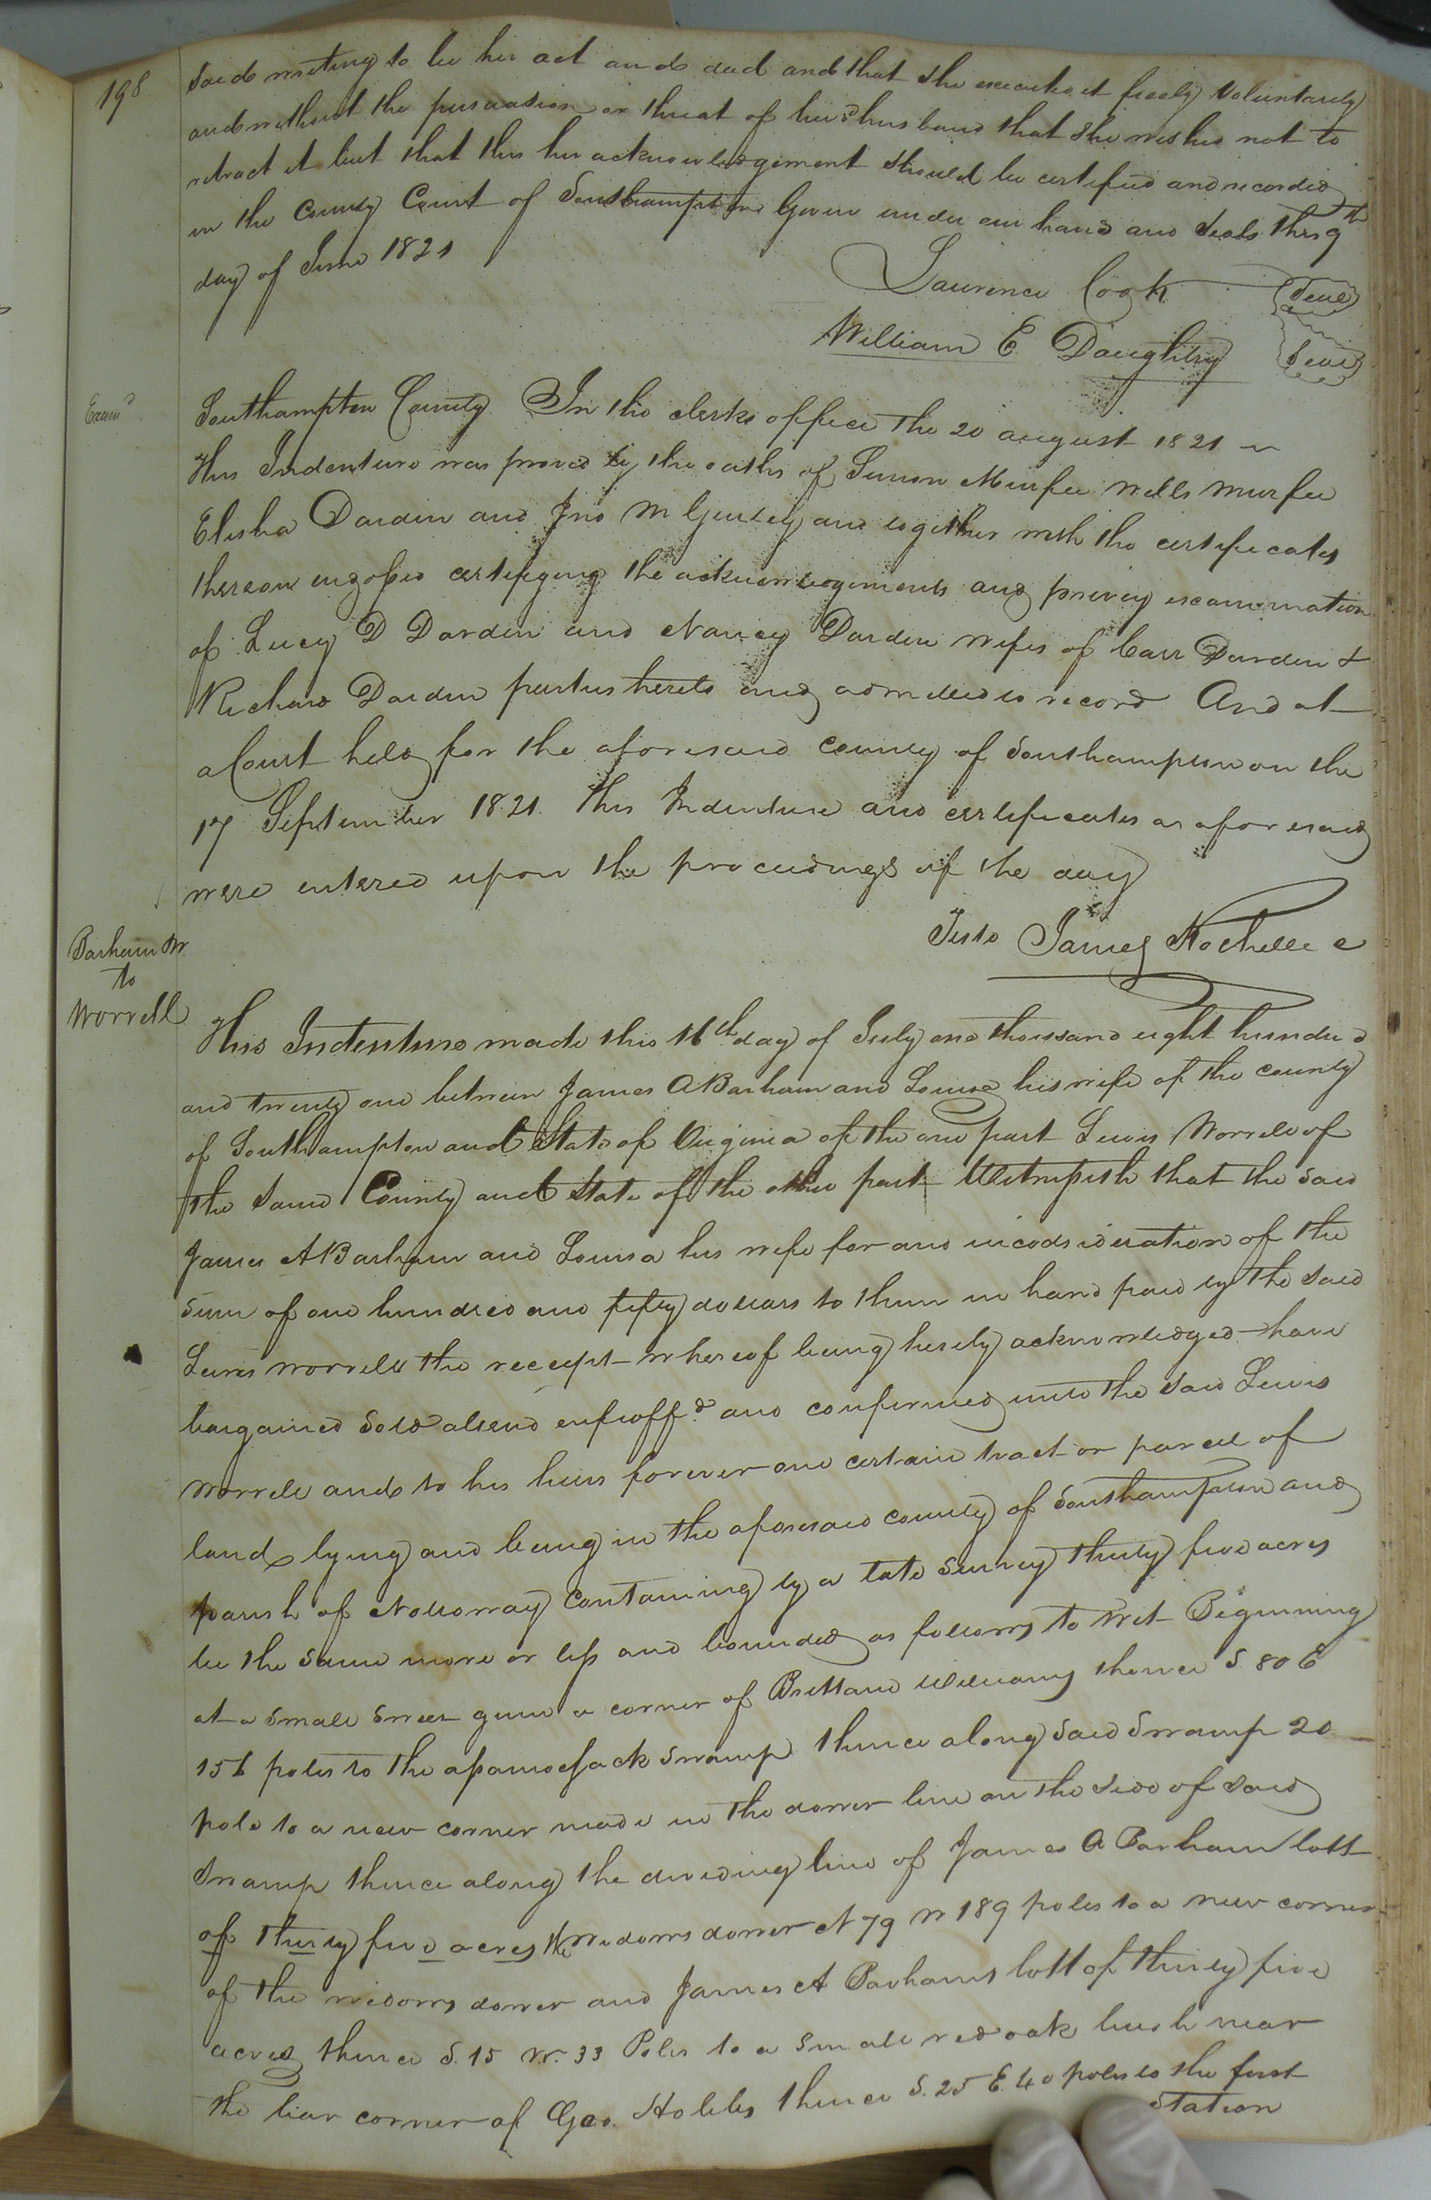 198
said writing to be her act and deed and that she executed it freely Voluntarily
and without the persuasion or threat of her husband that she wishes not to
retract it but that this her acknowledgement should be certified and recorded
in the County Court of Southampton Given under our hand and Seals this 9th
day of June 1821
Laurence Cook Seal
William E Daughtry Seal
Exam'd
Southampton County. In the clerks office the 20 august 1821
This Indenture was proved by the oaths of Simon Murfee wells murfee
Elisha Darden and Jno M Gurley and together with the certificates
thereon endorsed certifying the acknowledgements and privy examination
of Lucy D Darden and Nancy Darden wifes of Carr Darden &
Richard Darden parties hereto and admitted to record And at
a Court held for the aforesaid county of Southampton on the
17 September 1821. This Indenture and certificates as aforesaid
were entered upon the proceedings of the day
Teste James Rochelle c
Barham &c
to
Worrell
This Indenture made this 16th day of July one thousand eight hundred
and twenty one between James A Barham and Louisa his wife of the county
of Southampton and State of Virginia of the one part Lewis Worrell of
the same County and State of the other part Witnesseth that the said
James A Barham and Louisa his wife for and in codsideration of the
sum of one hundred and fifty dollars to them in hand paid by the said
Lewis Worrell the receipt whereof being hereby acknowledged have
bargained Sold aliend enfeoff'd and confirmed unto the said Lewis
Worrell and to his heirs forever one certain tract or parcel of
land lying and being in the aforesaid county of Southampton and
parish of Nottoway Containing by a late Survey thirty five acres
be the same more or less and bounded as follows to Wit Beginning
at a small sweet gum a corner of Brittain Williams thence S 80 E
156 poles to the apamosack swamp thence along said Swamp 20
pole to a new corner made in the dower line on the side of said
Swamp thence along the dividing line of James A Barham lott
of thirty five acres the widows dower N 79 W 189 poles to a new corner
of the widows dower and James A Barhams lott of thirty five
acres thence S. 15 W. 33 Poles to a small red oak bush near
the liar corner of Geo. Hobbs thence S. 25 E. 40 poles to the first
station